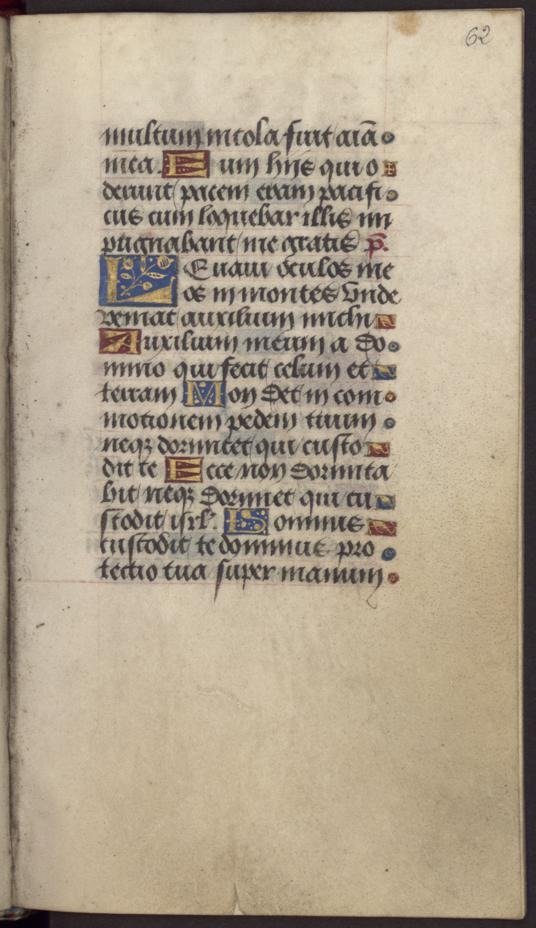 62
multum incola fuit aīa
mea. Cum hiis qui o
derunt pacem eram pacifi
cus cum loquebar illis im
pugnabant me gratis p̄.
LEuaui oculos me
os in montes Unde
veniat auxilium michi
Auxilium meum a Do
mino qui fecit celum et
terram Non Det in com
motionem pedem tuum
neqꝫ dormitet qui custo
dit te Ecce non Dormita
bit neqꝫ Dormiet qui cu
stodit isrl'. Dominus
custodit te dominus pro
tectio tua super manum